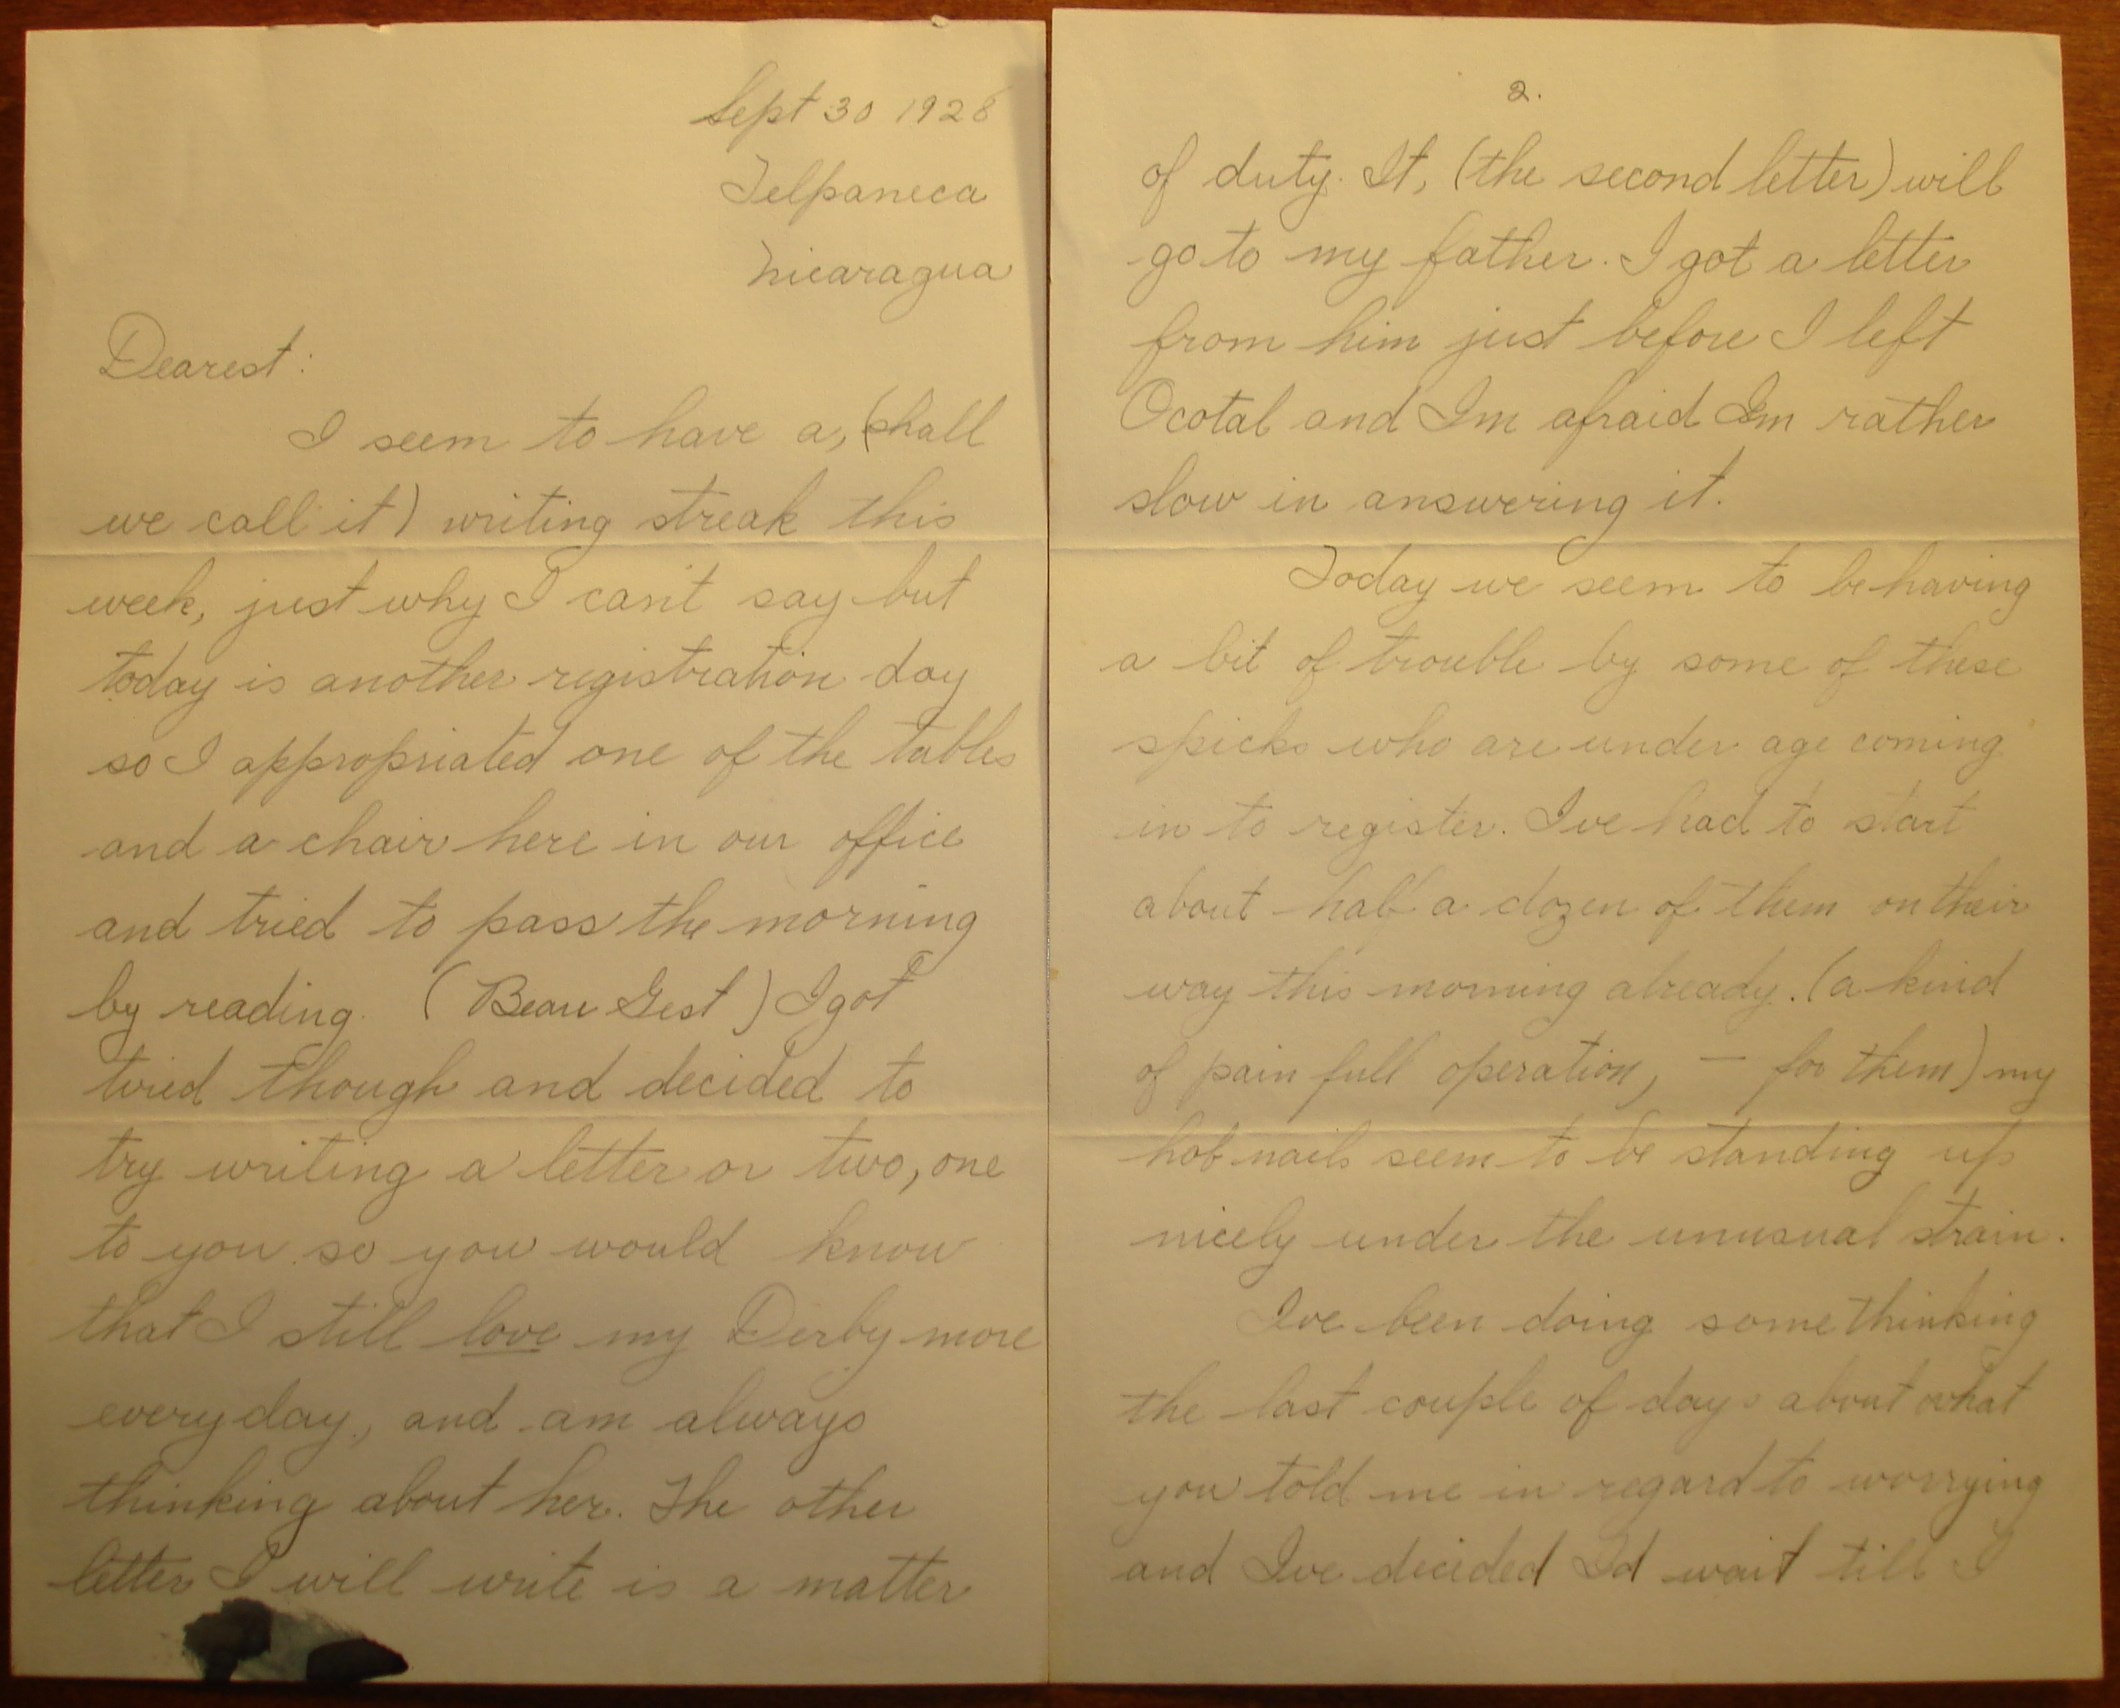 Sept 30 1928
Telpaneca
Nicaragua
Dearest:
I seem to have a, (shall
we call it) writing streak this
week, just why I can't say but
today is another registration day
so I appropriated one of the tables
and a chair here in our office
and tried to pass the morning
by reading. (Beau Gest) I got
tired though and decided to
try writing a letter or two, one
to you so you would know
that I still love my Derby more
everyday, and am always
thinking about her. The other
letter I will write is a matter
2.
of duty. It, (the second letter) will
go to my father. I got a letter
from him just before I left
Ocotal and Im afraid Im rather
slow in answering it.
Today we seem to be having
a bit of trouble by some of these
spicks who are under age coming
in to register. Ive had to start
about half a dozen of them on their
way this morning already. (a kind
of pain full operation, — for them) my
hob nails seem to be standing up
nicely under the unusual strain.
Ive been doing some thinking
the last couple of days about what
you told me in regard to worrying
and Ive decided Id wait till I